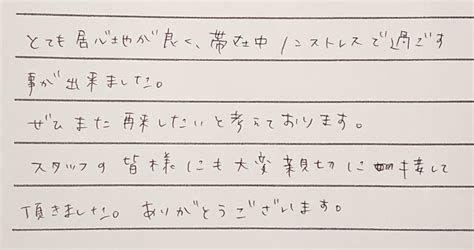 とても居心地が良く、帯在中ノンストレスで過ごす
事が出来ました。
ぜひまた再来したいと考えております。
スタッフの皆様にも大変親切に接して
頂きました。ありがとうございます。